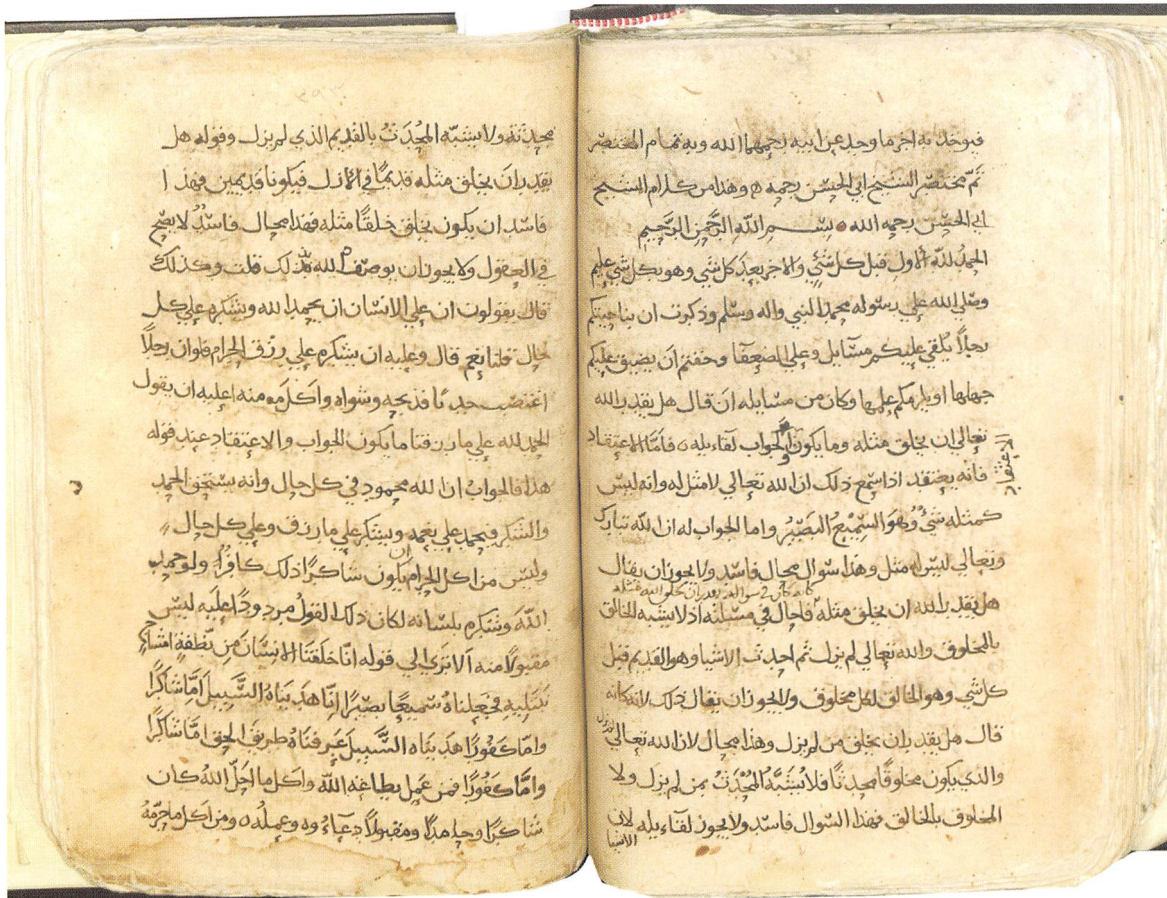 فيوخذ به اخر ما وجد عن ابيه رحمهما الله وبه تمام المختصر
تم مختصر الشيخ ابي الحسن رحمه الله وهذا من كلام الشيخ
ابي الحسن رحمه الله بسم الله الرحمن الرحيم
الحمد لله الأول قبل كل شيء والاخر بعد كل شي وهو بكل شي عليم
وصلى الله علي رسوله محمد النبي واله وسلم وذكرت ان بناحيتكم
رجلا يلقي عليكم مسايل وعلي الضعفا وخفتم أن يضيق عليكم
جهلها او يلزمكم علمها وكان من مسايله ان قال هل يقدر الله
تعالي ان يخلق مثله وما يكون الجواب لقاء يله فأما الاعتقاد
الاعتقاد
فانه يعتقد اذا سمع ذلك ان الله تعالي لا مثل له وانه ليس
كمثله شيء وهو السميع البصير واما الجواب له ان الله تبارك
وتعالي ليس له مثل وهذا سوال محال فاسد ولا يجوز ان يقال
كانه قال في سواله يقدر ان يخلق الله مثله
هل يقدر الله ان يخلق مثله فاحال في مسئلته اذ لا يشبه الخالق
بالمخلوق والله تعالي لم يزل ثم احدث الاشيا وهو القديم قبل
كل شي وهو الخالق لكل مخلوق ولا يجوز ان يقال ذلك لانه كانه
قال هل يقدر ان يخلق من لم يزل وهذا محال لان الله تعالي لم يزل
والذي يكون مخلوقا محدثا فلا يشبه المحدث بمن لم يزل ولا
المخلوق بالخالق فهذا السوال فاسد ولا يجوز لقاء يله لان
الاشيا
محدثة ولا يشبه المحدث بالقديم الذي لم يزل وقوله هل
يقدر ان يخلق مثله قديما في الأزل فيكونا قديمين فهذا
فاسد ان يكون يخلق خلقا مثله فهذا محال فاسد لا يصح
في العقول ولا يجوز ان يوصف الله بذلك قلت وكذلك
قال يقولون ان علي الانسان ان يحمد الله ويشكره علي كل
حال قلنا نعم قال وعليه ان يشكره علي رزق الحرام فلو ان رجلا
اغتصب فذبحه وشواه واكل منه اعليه ان يقول
الحمد لله علي ما رزقنا ما يكون الجواب والاعتقاد عند قوله
هذا فالجواب ان الله محمود في كل حال وانه يستحق الحمد
والشكر فيحمد علي نعمه ويشكر علي ما رزق وعلي كل حال
وليس من اكل الحرام يكون شاكرا ذلك كافرا ولو حمد
الله وشكره بلسانه لكان ذلك القول مردودا عليه ليس
مقبولا منه ألا تري الي قوله انا خلقنا الانسان من نطفة امشاج
نبتليه فجعلناه سميعا بصيرا انا هديناه السبيل اما شاكرا
واما كفورا هديناه السبيل عرفناه طريق الحق اما شاكرا
واما كفورا فمن عمل بطاعة الله واكل ما احل الله كان
شاكرا وحامدا ومقبولا دعاءوه وعمله ومن اكل ما حرمه